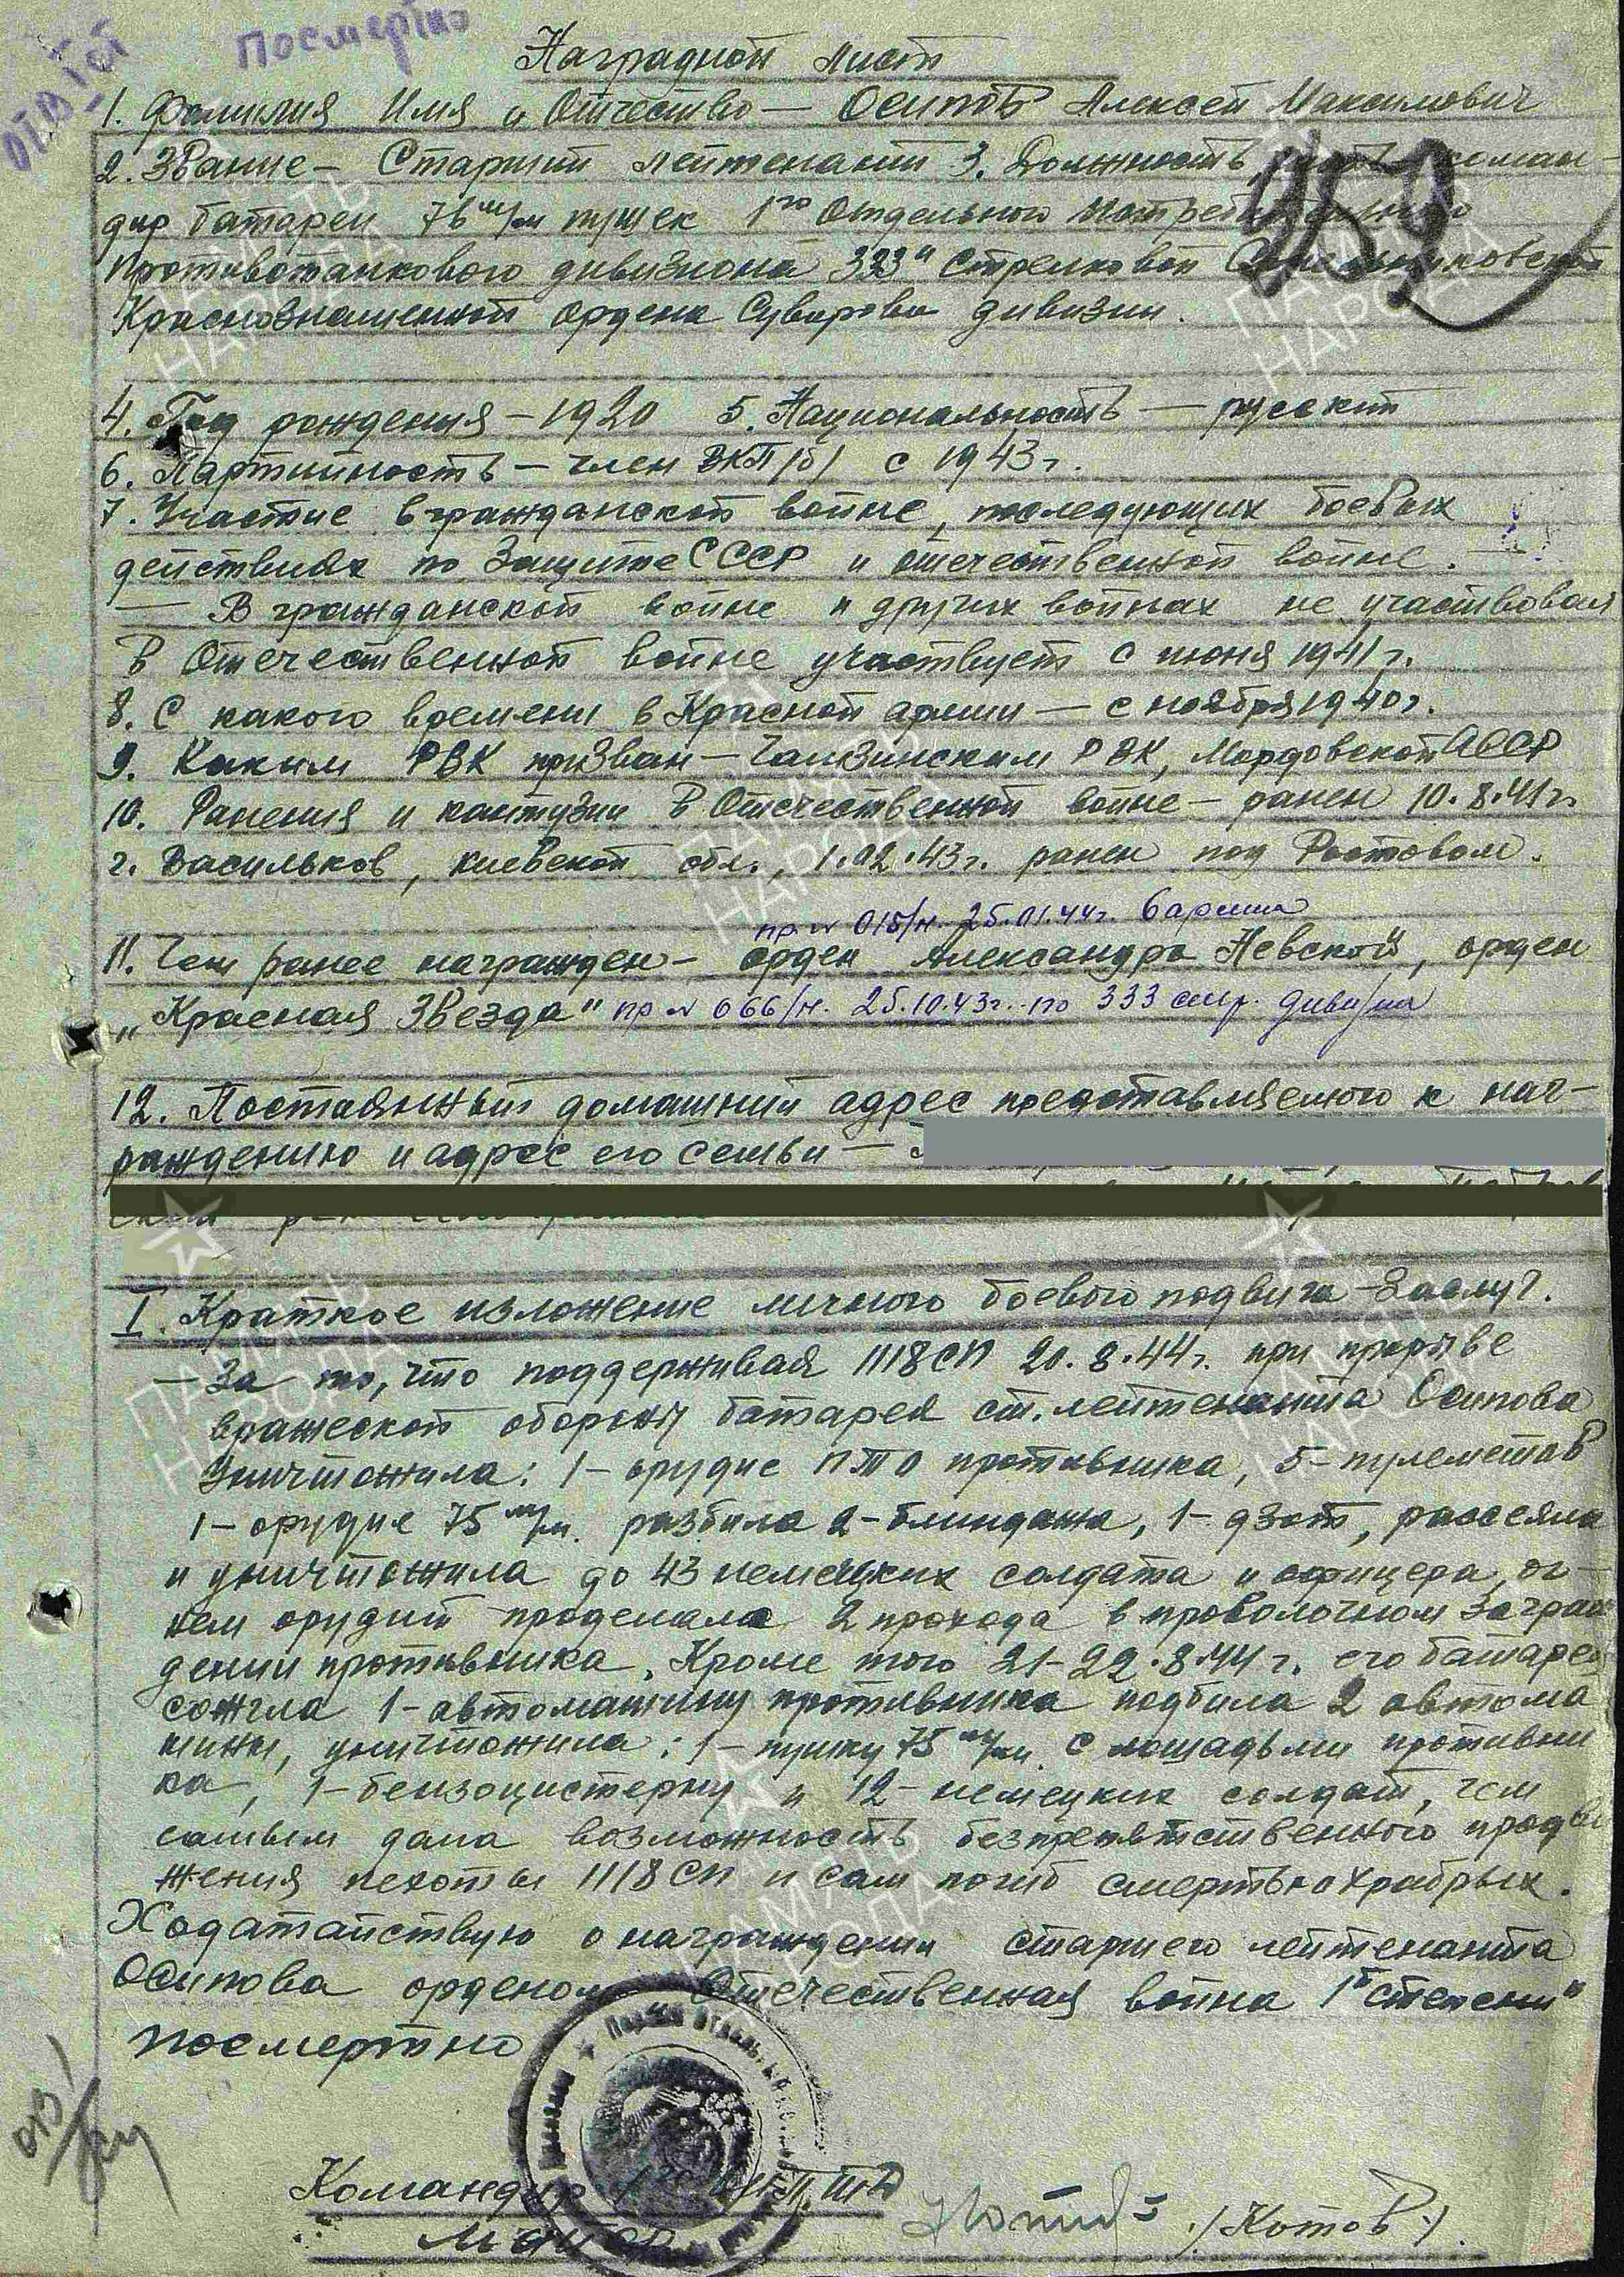 Посмертно
отв I ст
Наградной лист
1. Фамилия Имя и Отчество — Осипов Алексей Максимович
2. Звание — Старший лейтенант 3. Должность, коман-
дир батареи 76 м/м пушек 1го Отдельного Истребительного
противотанкового дивизиона 333й стрелковой Синельниковской
Краснознаменной ордена Суворова дивизии.
4. Год рождения — 1920 5. Национальность — русский
6. Партийность — член ВКП/б/ с 1943 г.
7. Участие в гражданской войне, последующих боевых
действиях по защите СССР и отечественной войне.
— В гражданской войне и других войнах не участвовал
В Отечественной войне участвует с июня 1941 г.
8. С какого времени в Красной армии — с ноября 1940 г.
9. Каким РВК призван — Чамзинским РВК, Мордовской АССР
10. Ранения и контузии в Отечественной войне — ранен 10.8.41 г.
г. Васильков, киевской обл., 1.02.43 г. ранен под Ростовом.
пр. № 015/н. 25.01.44 г. 6 армии
11. Чем ранее награжден — орден Александра Невской", орден
„Красная Звезда" пр № 066/н. 25.10.43 г. по 333 стр. дивизии
12. Постоянный домашний адрес представляемого к наг-
раждению и адрес его семьи —
I. Краткое изложение личного боевого подвига - Заслуг.
— За то, что поддерживая 1118 СП 20.8.44 г. при прорыве
вражеской обороны батарея ст. лейтенанта Осипова
Уничтожила: 1 - орудие ПТО противника, 5 - пулеметов
1 - орудие 75 м/м. разбила 2 - блиндажа, 1 - дзот, рассеяла
и уничтожила до 43 немецких солдата и офицера, ог-
нем орудий проделала 2 прохода в проволочном заграж
дении противника. Кроме того 21-22.8.44 г. его батарея
сожгла 1 - автомашину противника подбила 2 автома
шины, уничтожила: 1 - пушку 75 м/м. с лошадьми противни
ка, 1 - бензоцистерну и 12 - немецких солдат, чем
самым дала возможность безпрепятственного продви
жения пехоты 1118 СП и сам погиб смертью храбрых.
Ходатайствую о награждении старшего лейтенанта
Осипова орденом „Отечественная война 1й степени"
посмертно
Командир 1го ОИПТД
Майор /Котов/